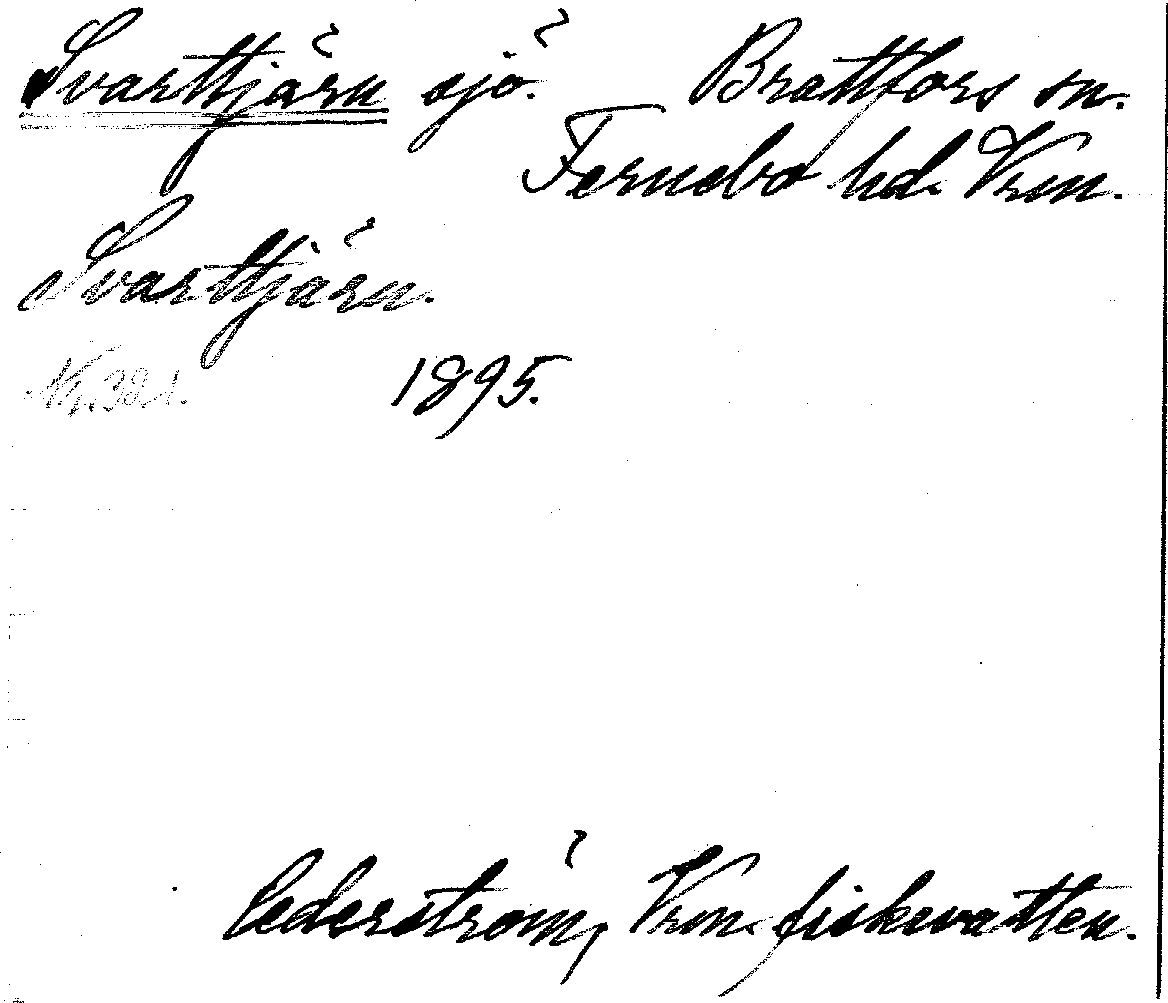 Svarttjärn sjö. Brattfors sn.
Fernebo hd. Vrm.
Svarttjärn.
Nr. 321. 1895.
Cederström, Vrm. fiskevatten.